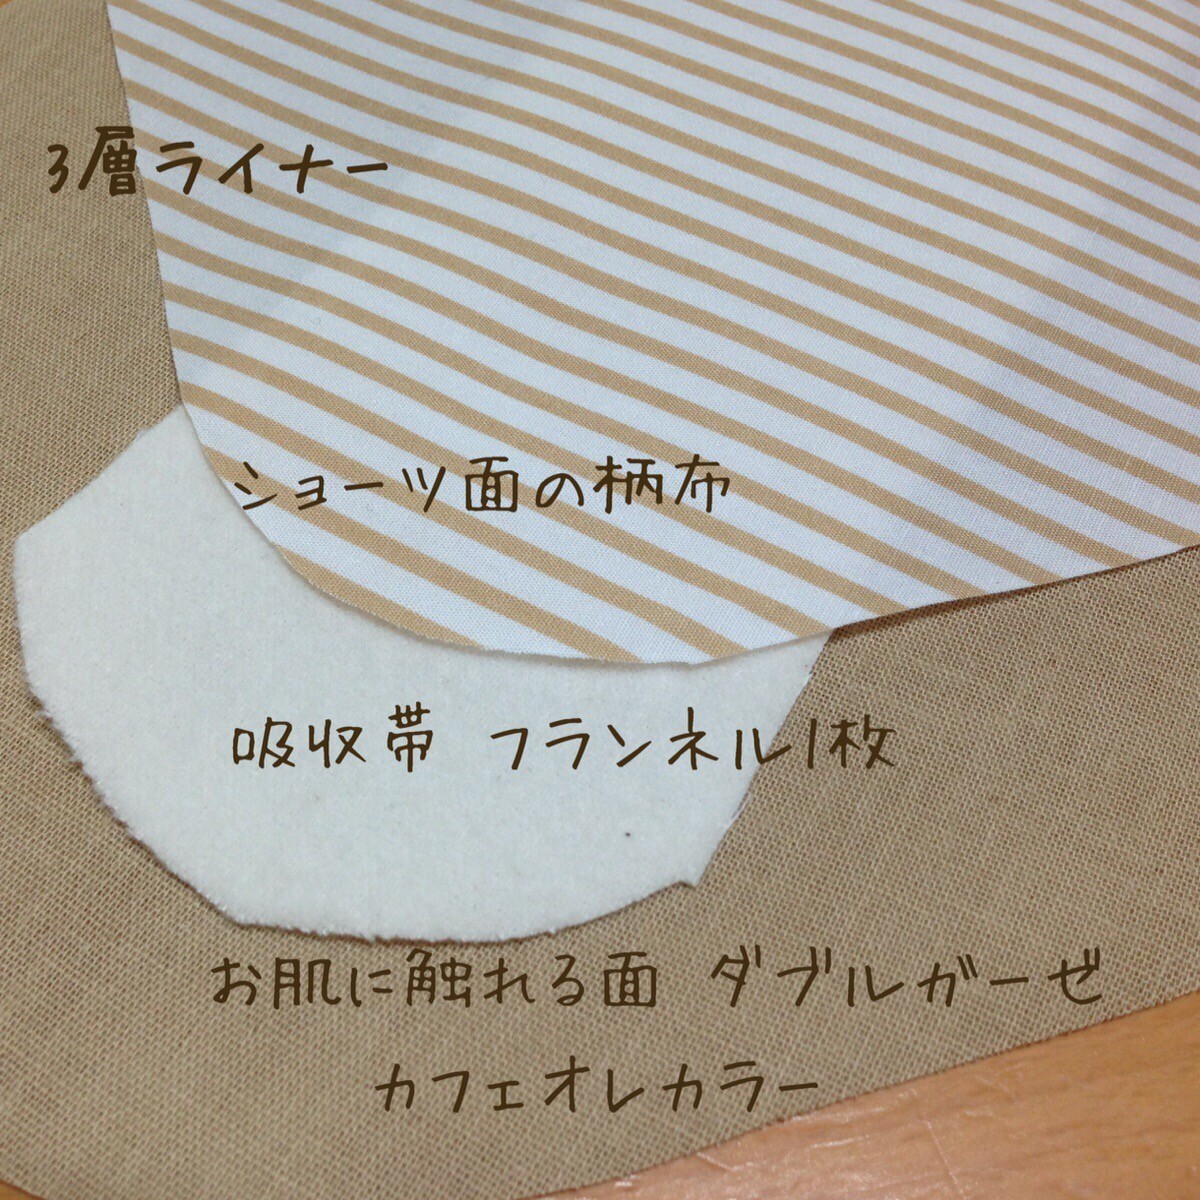 3層ライナー
ショーツ面の柄布
吸収帯 フランネル1枚
お肌に触れる面 ダブルガーゼ
カフェオレカラー